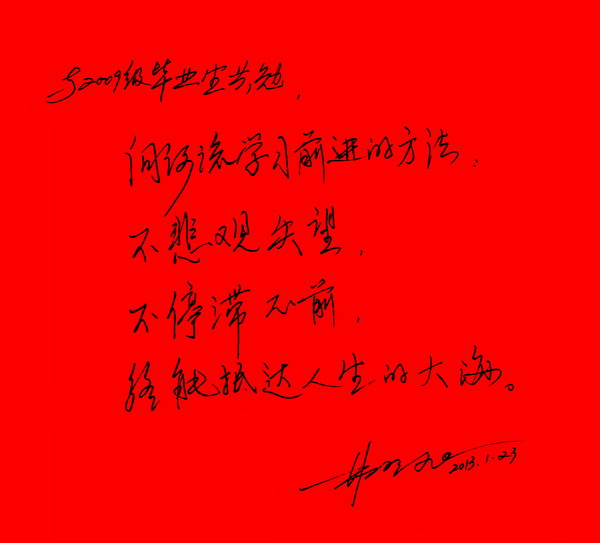 与2009级毕业生共勉，
向河流学习前进的方法，
不悲观失望，
不停滞不前，
终能抵达人生的大海。
2013.1.23